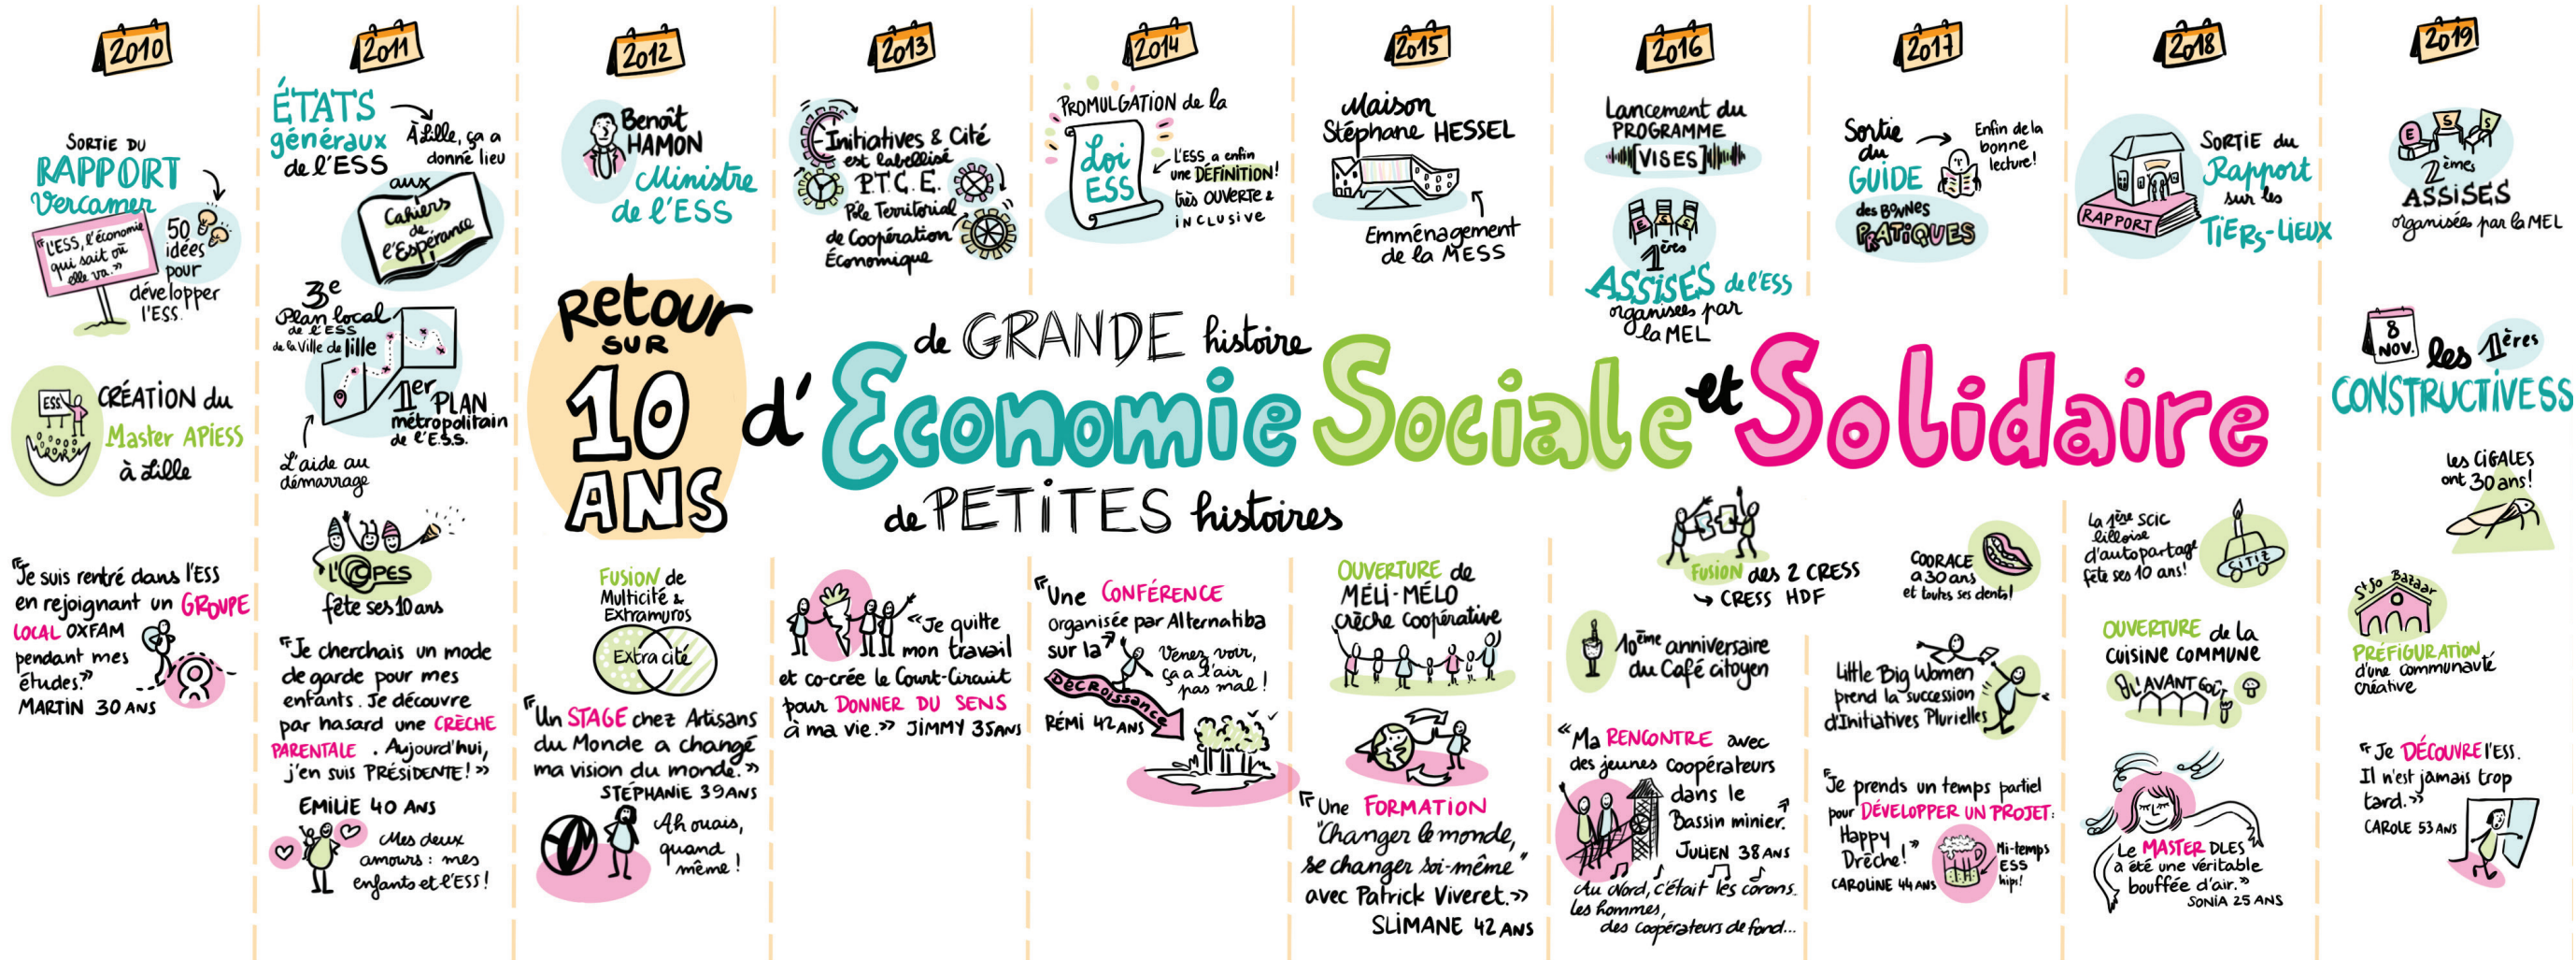 2010
SORTIE DU
RAPPORT
Vercamer
"L'ESS, l'économie
qui sait où
elle va."
50
idées
pour
développer
l'ESS.
CRÉATION du
Master APIESS
à Lille
ESS
"Je suis rentré dans l'ESS
en rejoignant un GROUPE
LOCAL OXFAM
pendant mes
études."
MARTIN 30 ANS
2011
ÉTATS
généraux
de l'ESS
À Lille, ça a
donné lieu
aux
Cahiers
de
l'Espérance
3e
Plan local
de l'ESS
de la Ville de lille
1er PLAN
métropolitain
de l'E.S.S.
L'aide au
démarrage
L'COPES
fête ses 10 ans
"Je cherchais un mode
de garde pour mes
enfants. Je découvre
par hasard une CRÈCHE
PARENTALE . Aujourd'hui,
j'en suis PRÉSIDENTE! »
EMILIE 40 ANS
Mes deux
amours : mes
enfants et l'ESS!
2012
Benoît
HAMON
Ministre
de l'ESS
Retour
SUR
10
ANS
d'Economie Sociale et Solidaire
de GRANDE histoire
de PETITES histoires
FUSION de
Multicité &
Extramuros
Extra cité
"Un STAGE chez Artisans
du Monde a changé
ma vision du monde."
STÉPHANIE 39 ANS
Ah ouais,
quand
même !
2013
Initiatives & Cité
est labellisé
P.T.C.E.
Pôle Territorial
de Coopération
Économique
«Je quitte
mon travail
et co-crée le Court-Circuit
pour DONNER DU SENS
à ma vie.» JIMMY 35 ANS
2014
PROMULGATION de la
Loi
ESS
L'ESS a enfin
une DÉFINITION!
très OUVERTE &
INCLUSIVE
"Une CONFÉRENCE
organisée par Alternatiba
sur la"
DÉCROISSANCE
Venez voir,
ça a l'air
pas mal !
RÉMI 42 ANS
2015
Maison
Stéphane HESSEL
Emménagement
de la MESS
OUVERTURE de
MÉLI-MÉLO
crèche coopérative
"Une FORMATION
"Changer le monde,
se changer soi-même"
avec Patrick Viveret.»
SLIMANE 42 ANS
2016
Lancement du
PROGRAMME
[VISES]
E S S
1ères
ASSISES de l'ESS
organisées par
la MEL
FUSION des 2 CRESS
→ CRESS HDF
10ème anniversaire
du Café citoyen
«Ma RENCONTRE avec
des jeunes coopérateurs
dans le
Bassin minier.
JULIEN 38 ANS
Au Nord, c'était les corons.
Les hommes,
des coopérateurs de fond...
2017
Sortie
du
GUIDE
des BONNES
PRATIQUES
Enfin de la
bonne
lecture!
COORACE
a 30 ans
et toutes ses dents!
Little Big Women
prend la succession
d'Initiatives Plurielles
"Je prends un temps partiel
pour DÉVELOPPER UN PROJET:
Happy
Drêche!"
CAROLINE 44 ANS
Mi-temps
ESS
hips!
2018
RAPPORT
SORTIE du
Rapport
sur les
TIERS-LIEUX
La 1ère SCIC
lilloise
d'autopartage
fête ses 10 ans!
CITIZ
OUVERTURE de la
CUISINE COMMUNE
L'AVANT GOÛT
"Le MASTER DLES
a été une véritable
bouffée d'air."
SONIA 25 ANS
2019
E S S
2èmes
ASSISES
organisées par la MEL
8
NOV.
les 1ères
CONSTRUCTIVESS
Les CIGALES
ont 30 ans!
St So Bazaar
PRÉFIGURATION
d'une communauté
créative
"Je DÉCOUVRE l'ESS.
Il n'est jamais trop
tard.»
CAROLE 53 ANS